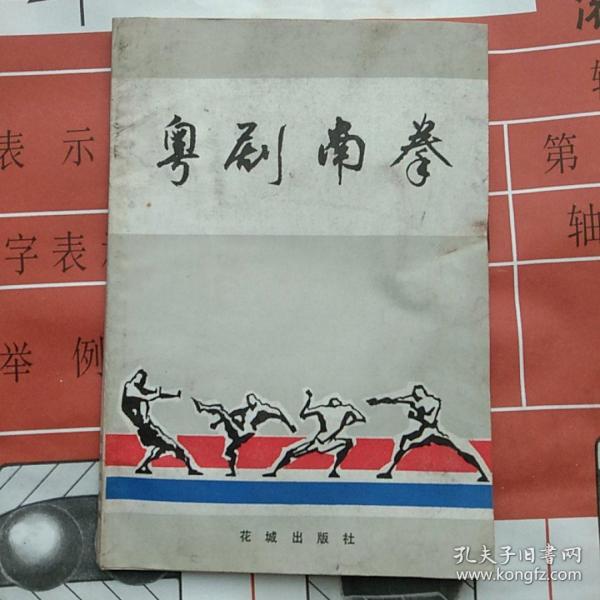 粤剧南拳
花城出版社
表示
字表示
举例
第
轴
孔夫子旧书网
www.kongfz.com